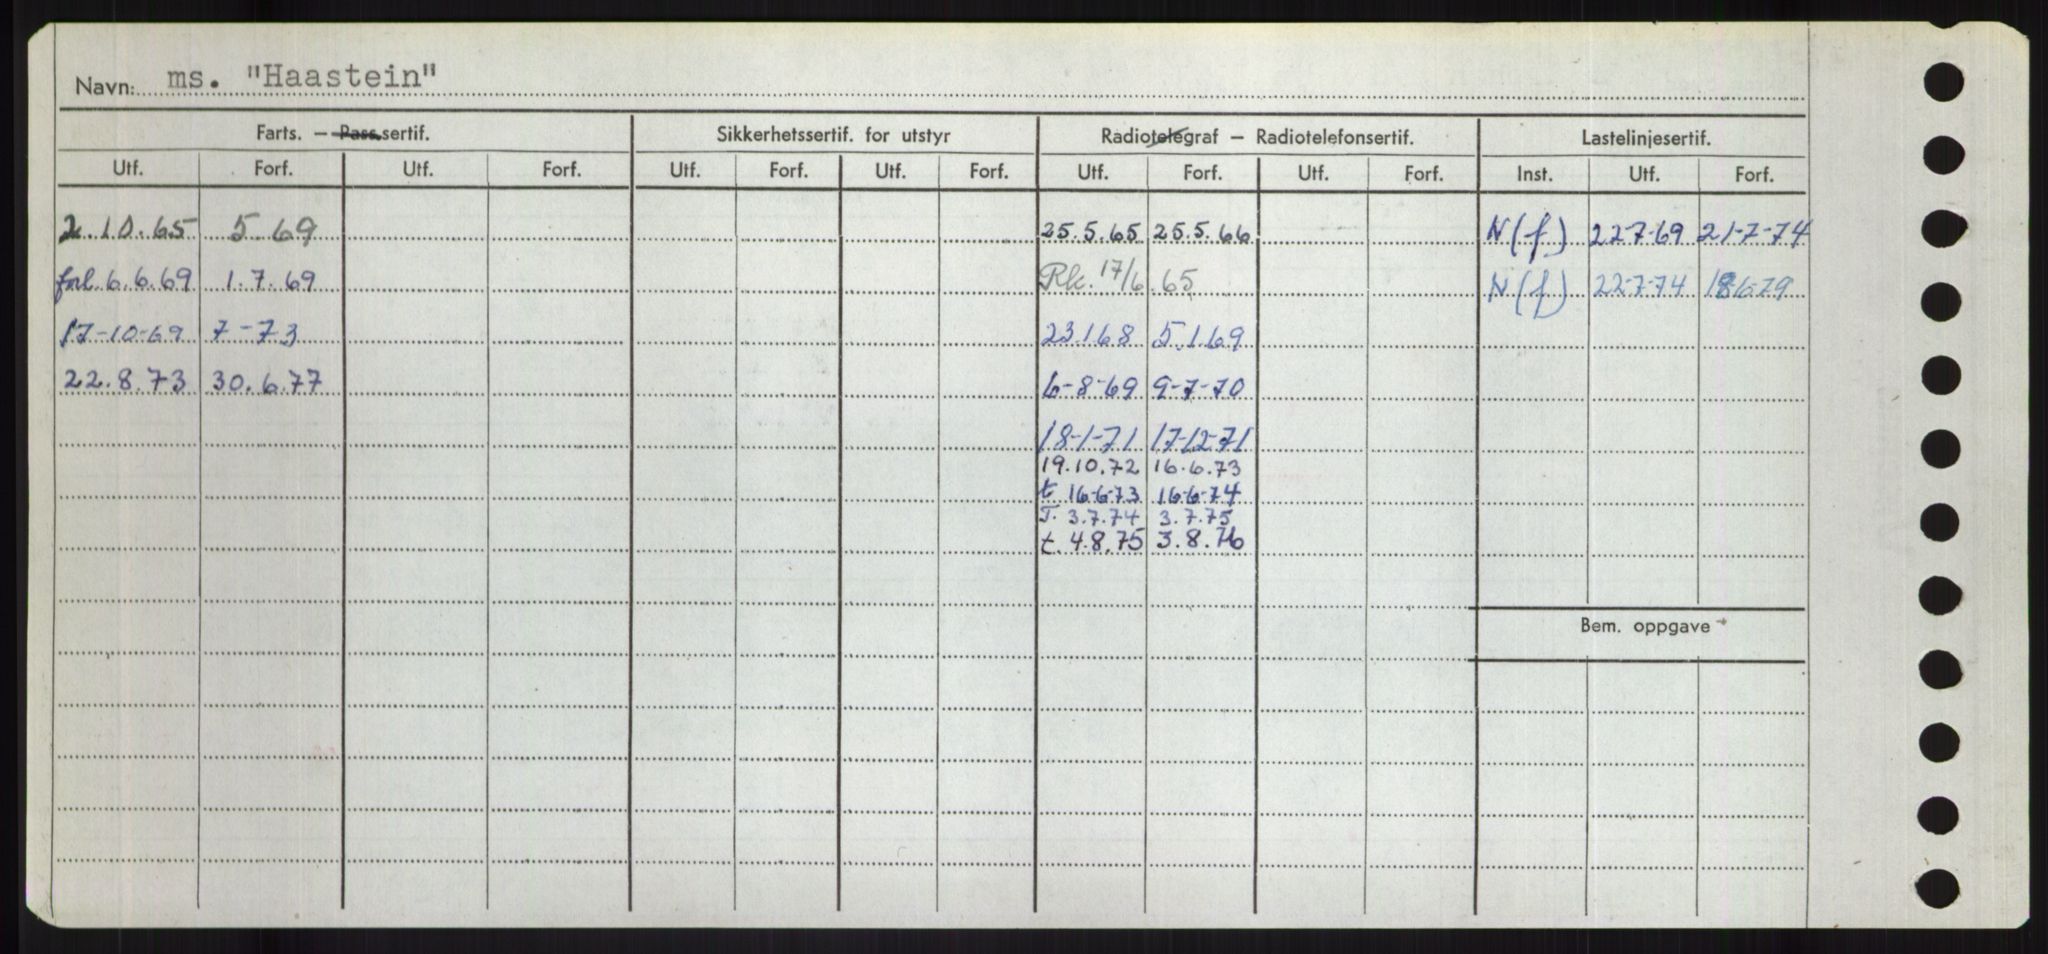 Navn: ms. "Haastein"
Farts. — Pass.sertif. Sikkerhetssertif. for utstyr Radiotelegraf — Radiotelefonsertif. Lastelinjesertif.
Utf. Forf. Utf. Forf. Utf. Forf. Utf. Forf. Utf. Forf. Utf. Forf. Inst. Utf. Forf.
2.10.65 5.69 25.5.65 25.5.66 N(f) 22-7-69 21-7-74
forl. 6.6.69 1.7.69 Rk. 17/6.65 N(f) 22-7-74 18-6-79
17-10-69 7-73 23.1.68 5.1.69
22.8.73 30.6.77 6-8-69 9-7-70
18-1-71 17-12-71
19.10.72 16.6.73
t 16-6-73 16-6-74
T. 3.7.74 3.7.75
t. 4.8.75 3.8.76
Bem. oppgave